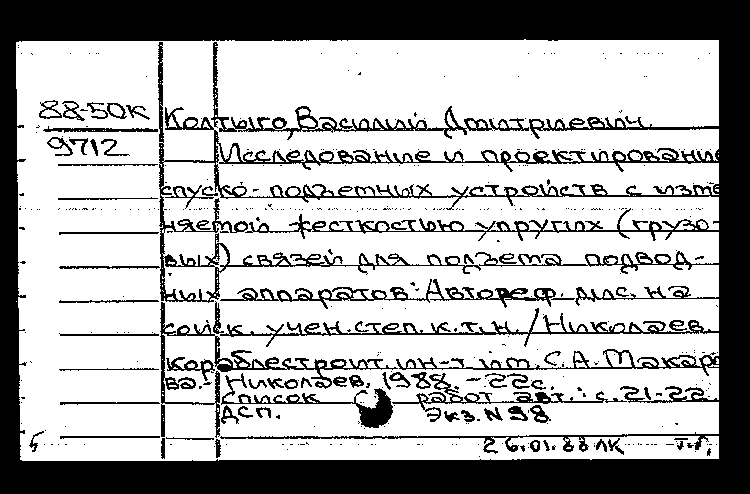 88-50к Колтыго, Василий Дмитриевич.
9712 Исследование и проектирование
спуско-подъемных устройств с изме
няемой жесткостью упругих (грузо-
вых) связей для подъема подвод-
ных аппаратов: Автореф. дис. на
соиск. учен. степ. к.т.н. / Николаев.
кораблестроит. ин-т им. С.А. Макаро
ва.- Николаев, 1988. - 22с.
Список работ авт.: с.21-22.
ДСП. Экз. N 98
26.01.88 ЛК